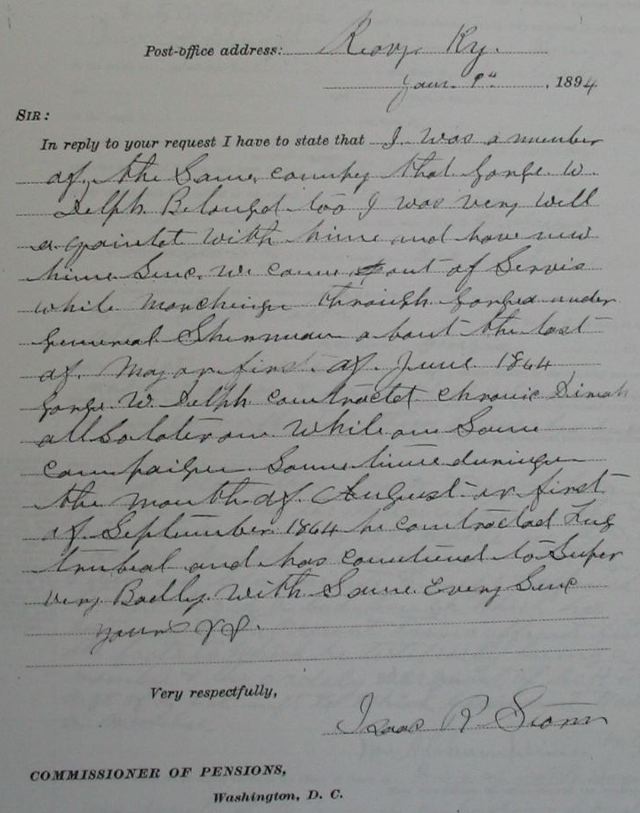 Post-office address: Ky.
Jan. 1894
SIR:
In reply to your request I have to state that I was a member
of the Same compey that Gorge W.
Delph Belongd too I was very well
aquaintet with hime and have new
hime Sinc. we came out of Servis
while Marchinge through Gorged under
General Sherman about the last
of May or first of June 1864
Gorge W Delph contractet chronic
also later on While on Same
campaign Sometime duringe
the month of August or first
of September 1864 he contracted Lug
trubal and has contiend to Super
very Badly With Same Every Sinc
yours
Very respectfully,
Isaac R
COMMISSIONER OF PENSIONS,
Washington, D. C.